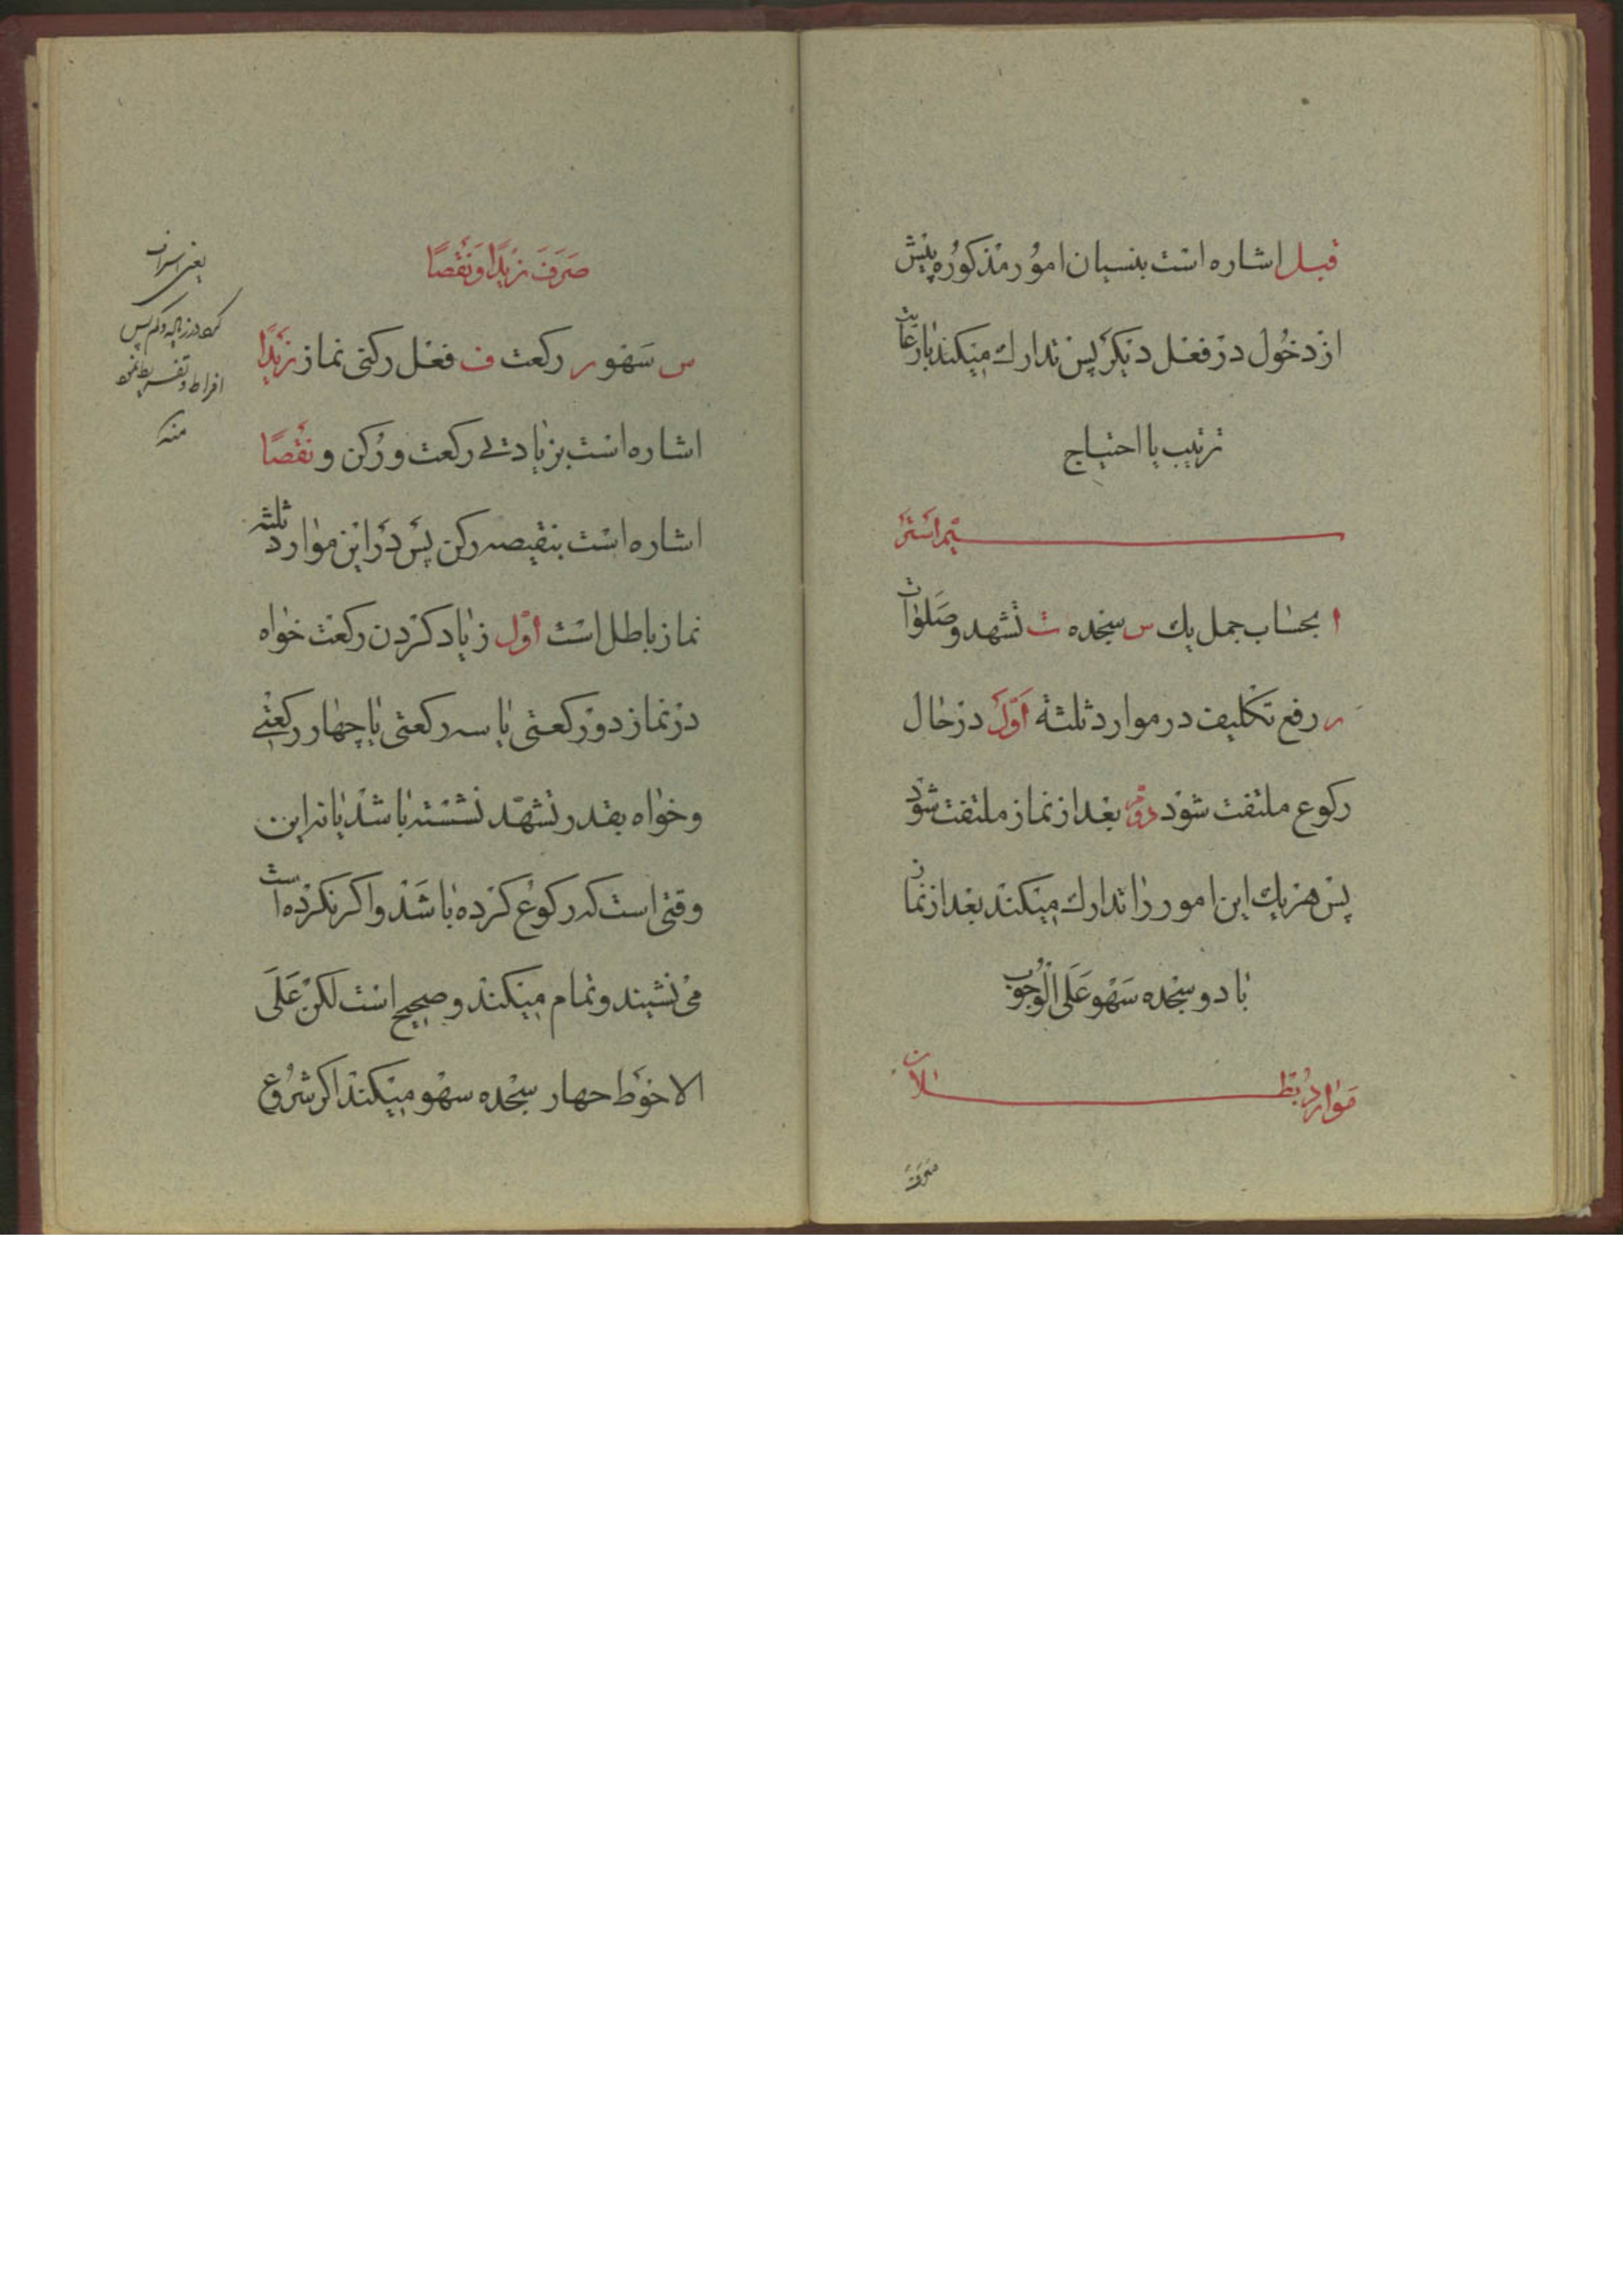 قبل اشاره است بنسیان امور مذکوره پیش
از دخول در فعل دیگر پس تدارک میکند بارعایت
ترتیب یا احتیاج
ا بحساب جمل یک س سجده ت تشهد و صلوات
ر رفع تکلیف در موارد ثلثة اول در حال
رکوع ملتفت شود دوم بعد از نماز ملتفت شود
پس هر یک این امور را تدارک میکند بعد از نماز
با دو سجده سهو علی الوجوب
موارد بطلان
صَرَفَ زَیدًا وَ نَقصًا
س سهو ر رکعت ف فعل رکنی نماز زیدًا
اشاره است بزیادتی رکعت و رکن و نقصًا
اشاره است بنقیصه رکن پس در این موارد ثلثه
نماز باطل است اول زیاد کردن رکعت خواه
در نماز دو رکعتی یا سه رکعتی یا چهار رکعتی
و خواه بقدر تشهّد نشسته باشد یا نه این
وقتی است که رکوع کرده باشد و اکر نکرده است
می نشیند و تمام میکند و صحیح است لکن علی
الاحوط چهار سجده سهو میکند اکر شروع
یعنی اسراف
افراط و تفریط
منه